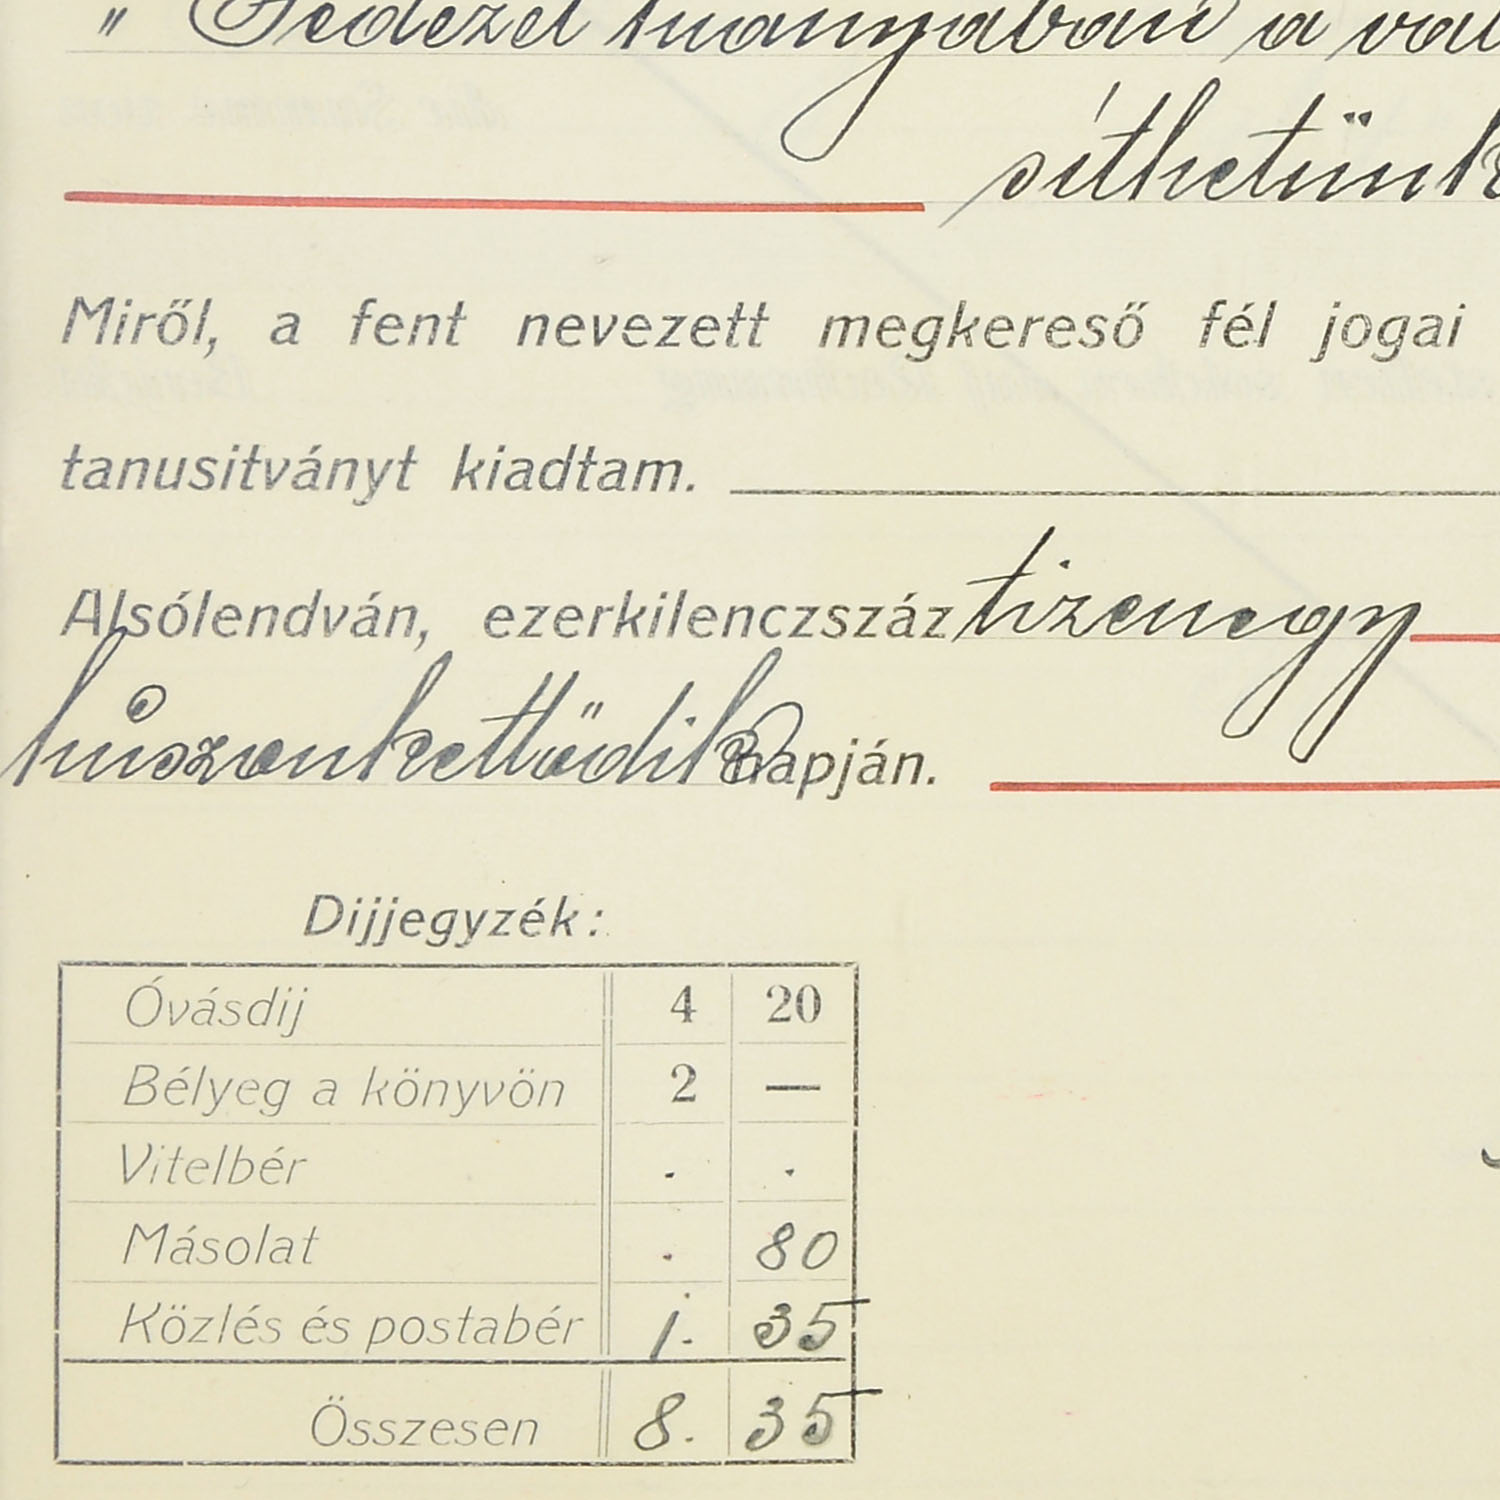 " Fedezet hiányában a val
síthetünk
Miről, a fent nevezett megkereső fél jogai
tanusitványt kiadtam.
Alsólendván, ezerkilenczszáz tizenegy
húszonkettődik napján.
Dijjegyzék:
Óvásdij 4 20
Bélyeg a könyvön 2 —
Vitelbér . .
Másolat . 80
Közlés és postabér 1. 35
Összesen 8. 35